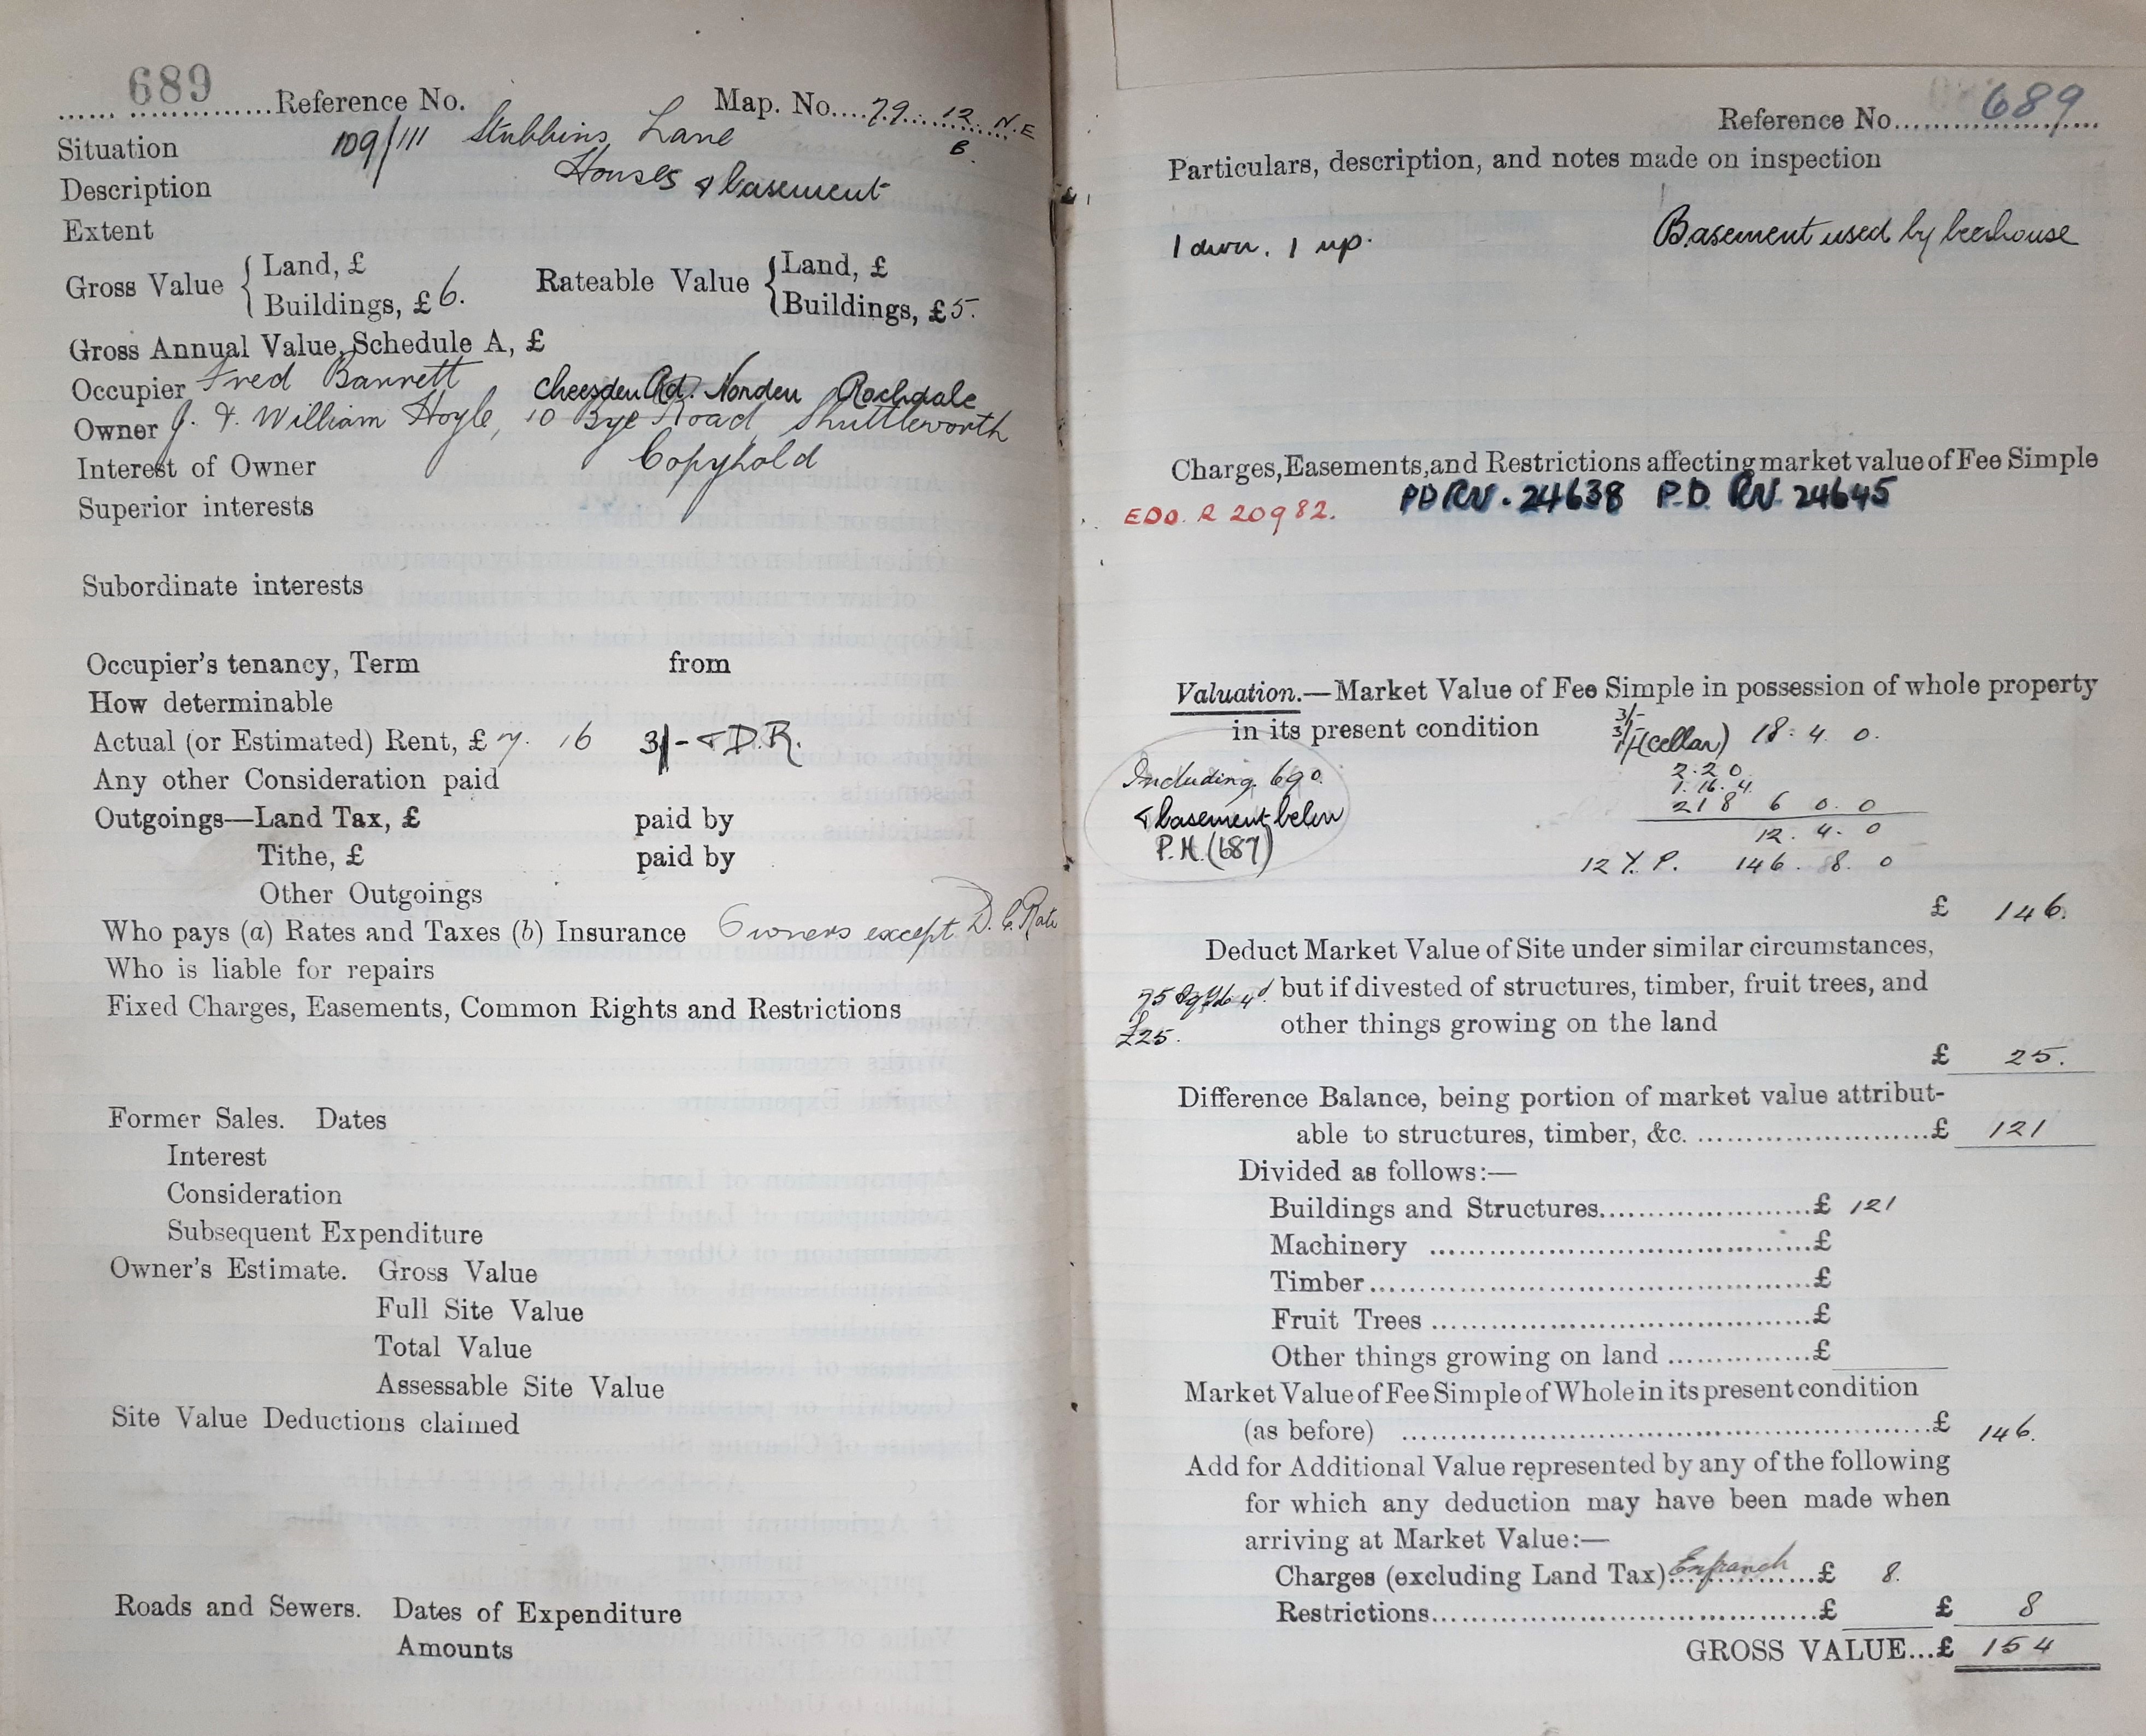 689 Reference No. Map. No. 79. 12. N.E
B.
Situation 109/111 Stubbins Lane
Description Houses & basement
Extent
Gross Value { Land, £
Buildings, £ 6.
Rateable Value { Land, £
Buildings, £ 5.
Gross Annual Value, Schedule A, £
Occupier Fred Barrett
Cheesden Rd. Norden Rochdale
Owner J. & William Hoyle, 10 Bye Road, Shuttleworth
Interest of Owner Copyhold
Superior interests
Subordinate interests
Occupier's tenancy, Term from
How determinable
Actual (or Estimated) Rent, £ 7. 16 3/- & D.R.
Any other Consideration paid
Outgoings—Land Tax, £ paid by
Tithe, £ paid by
Other Outgoings
Who pays (a) Rates and Taxes (b) Insurance Owners except D. C. Rate
Who is liable for repairs
Fixed Charges, Easements, Common Rights and Restrictions
Former Sales. Dates
Interest
Consideration
Subsequent Expenditure
Owner's Estimate. Gross Value
Full Site Value
Total Value
Assessable Site Value
Site Value Deductions claimed
Roads and Sewers. Dates of Expenditure
Amounts
Reference No. 689
Particulars, description, and notes made on inspection
1 down. 1 up. Basement used by beerhouse
Charges, Easements, and Restrictions affecting market value of Fee Simple
EDO. R 20982. PD RV. 24638 P.D. RV. 24645
Valuation.—Market Value of Fee Simple in possession of whole property
in its present condition
3/-
3/-
1/- (cellar) 18: 4. 0.
2. 2 0.
1. 16. 4
2 1 8 6 0. 0
12. 4. 0
12 Y. P. 146. 8. 0
Including. 690.
& basement below
P.H. (687)
£ 146.
Deduct Market Value of Site under similar circumstances,
but if divested of structures, timber, fruit trees, and
other things growing on the land
75 Sq Yds 4d
£25.
£ 25.
Difference Balance, being portion of market value attribut-
able to structures, timber, &c. £ 121
Divided as follows:—
Buildings and Structures £ 121
Machinery £
Timber £
Fruit Trees £
Other things growing on land £
Market Value of Fee Simple of Whole in its present condition
(as before) £ 146.
Add for Additional Value represented by any of the following
for which any deduction may have been made when
arriving at Market Value:—
Charges (excluding Land Tax) Enfranch £ 8.
Restrictions £ £ 8
GROSS VALUE...£ 154